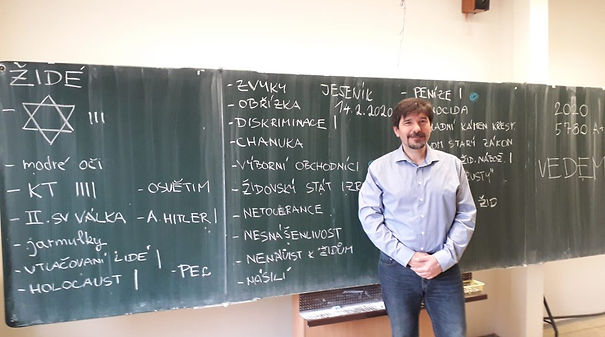 ŽIDÉ
- III
- modré oči
- KT IIII
- II. SV. VÁLKA
- jarmulky
- VTLAČOVANÍ ŽIDÉ I
- HOLOCAUST I
- OSVĚTIM
- A. HITLER I
- PEL
- ZVYKY
- OBŘÍZKA
- DISKRIMINACE I
- CHANUKA
- VÝBORNÍ OBCHODNÍCI
- ŽIDOVSKÝ STÁT IZR
- NETOLERANCE
- NESNÁŠENLIVOST
- NENÁVIST K ŽIDŮM
- NÁSILÍ
JESENÍK
14.2.2020
- PENÍZE I
NOCIDA
ADNÍ KÁMEN KŘEST.
OM STARÝ ZÁKON
ŽID. NÁBOŽ. I
USTY"
ŽID
2020
5780 A
VEDEM